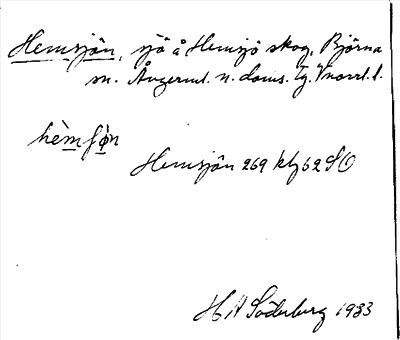 Hemsjön, sjö å Hemsjö skog, Björna
sn. Ångerml. n. doms. tg. Vnorrl. l.
hèmʃø̀n
Hemsjön 269 klg 62 SO
H A Söderberg 1933